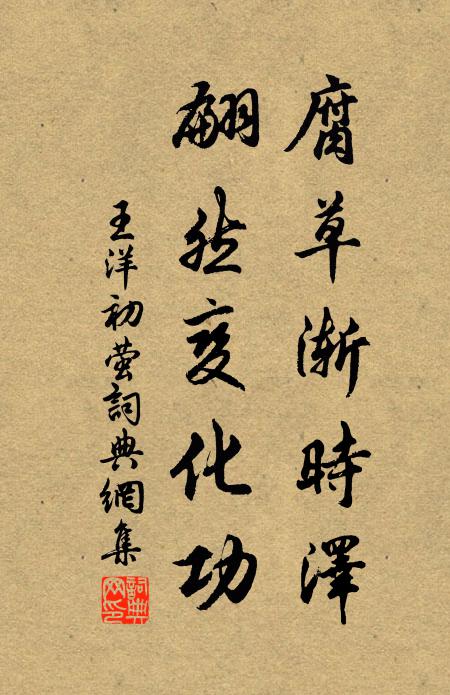 腐草漸時澤
翩然变化功
王洋初蛍詞典網集
詞典网印